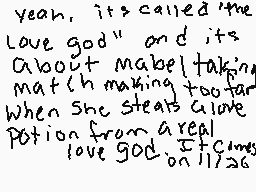 yeah, its called "the
Love god" and its
about mabel taking
match making too far
when she steals a love
potion from a real
love god. It comes
on 11/26